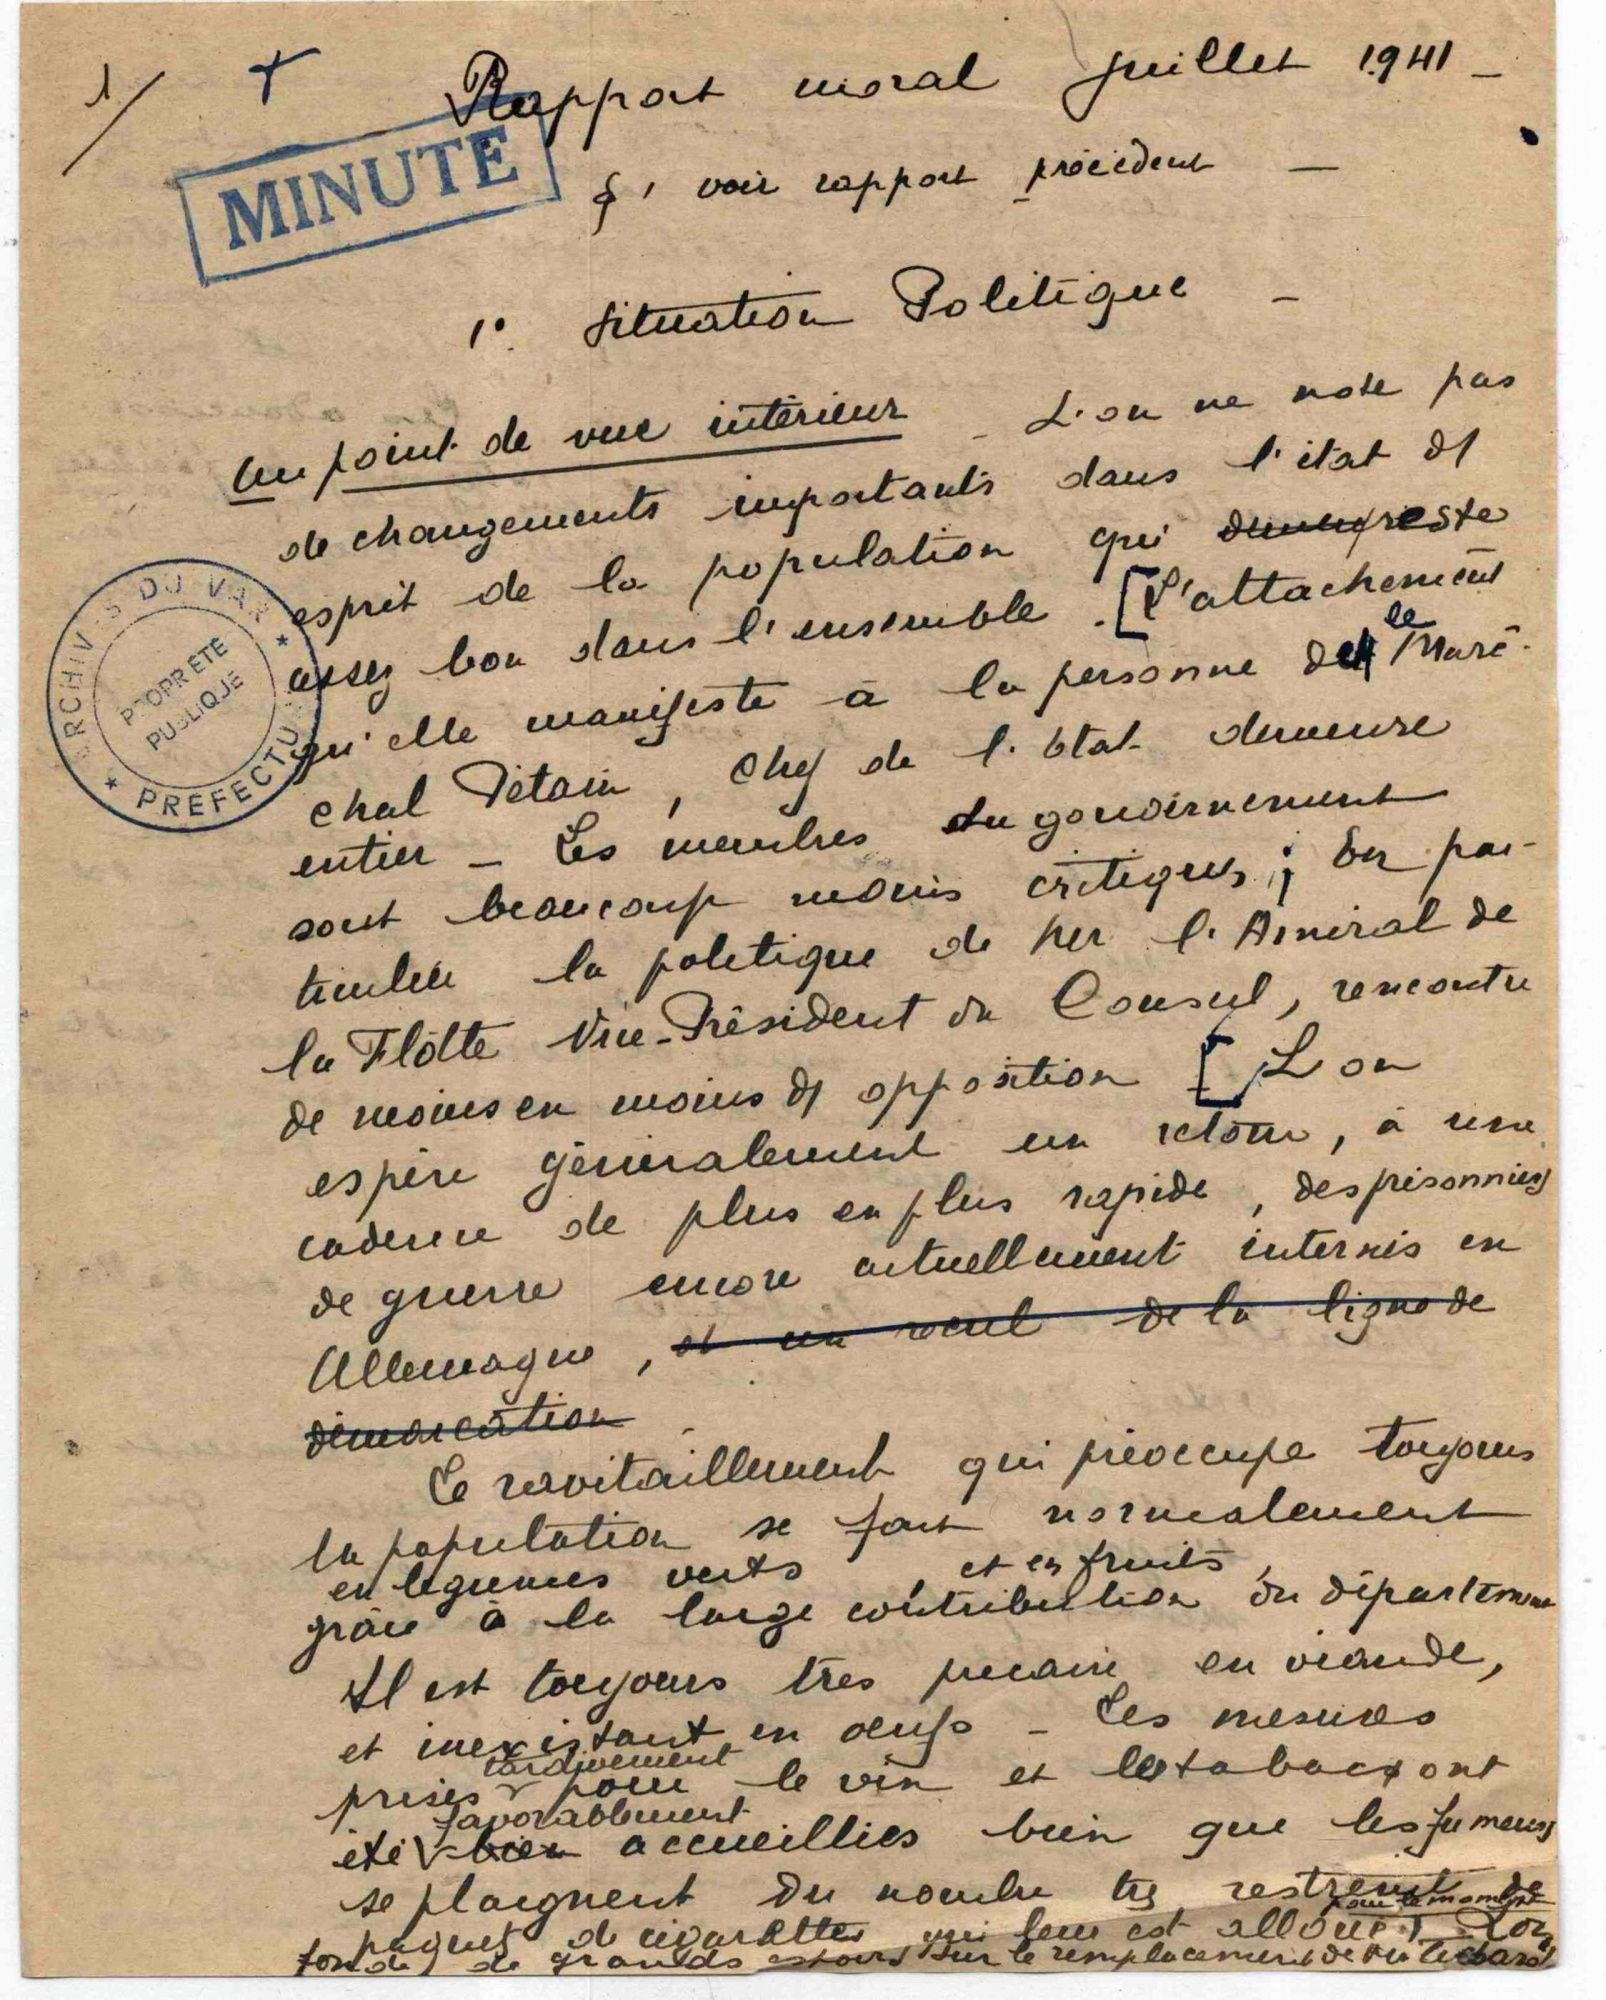 1/
Rapport moral juillet 1941 –
MINUTE
§ 1 voir rapport précédent –
1° Situation Politique –
Au point de vue intérieur – L'on ne note pas
de changements importants dans l'état d'
esprit de la population qui reste
assez bon dans l'ensemble. [L'attachement
qu'elle manifeste à la personne de le Maré-
chal Pétain, Chef de l'Etat demeure
entier – Les membres du gouvernement
sont beaucoup moins critiqués ; En par-
ticulier la politique de l'Amiral de
la Flotte Vice-Président du Conseil, rencontre
de moins en moins d'opposition [L'on
espère généralement un retour, à une
cadence de plus en plus rapide, des prisonniers
de guerre encore actuellement internés en
Allemagne, et un recul de la ligne de
démarcation
Le ravitaillement qui préoccupe toujours
la population se fait normalement
en légumes verts et en fruits,
grâce à la large contribution du département
Il est toujours très précaire en viande,
et inexistant en oeufs – Les mesures
tardivement
prises pour le vin et le tabac ont
favorablement
été bien accueillies bien que les fumeurs
se plaignent du nombre très restreint de
pour le moment
paquets de cigarettes qui leur est alloué. L'on
fonde de grands espoirs sur le remplacement de
ARCHIVES DU VAR
PROPRIÉTÉ
PUBLIQUE
PREFECTU